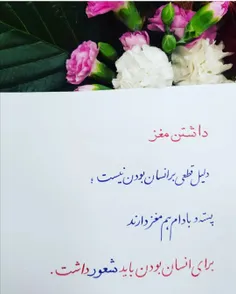 داشتن مغز
دلیل قطعی بر انسان بودن نیست ؛
پسته و بادام هم مغز دارند
برای انسان بودن باید شعور داشت .